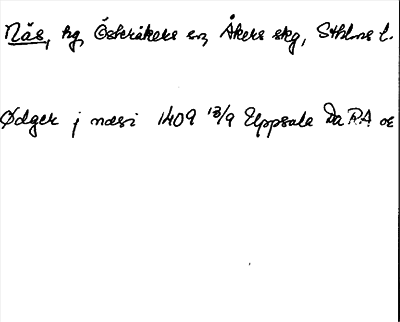 Näs, hg, Österåkers sn, Åkers skg, Sthlms l.
Ødger j næsi 1409 13/9 Uppsala Da RA or